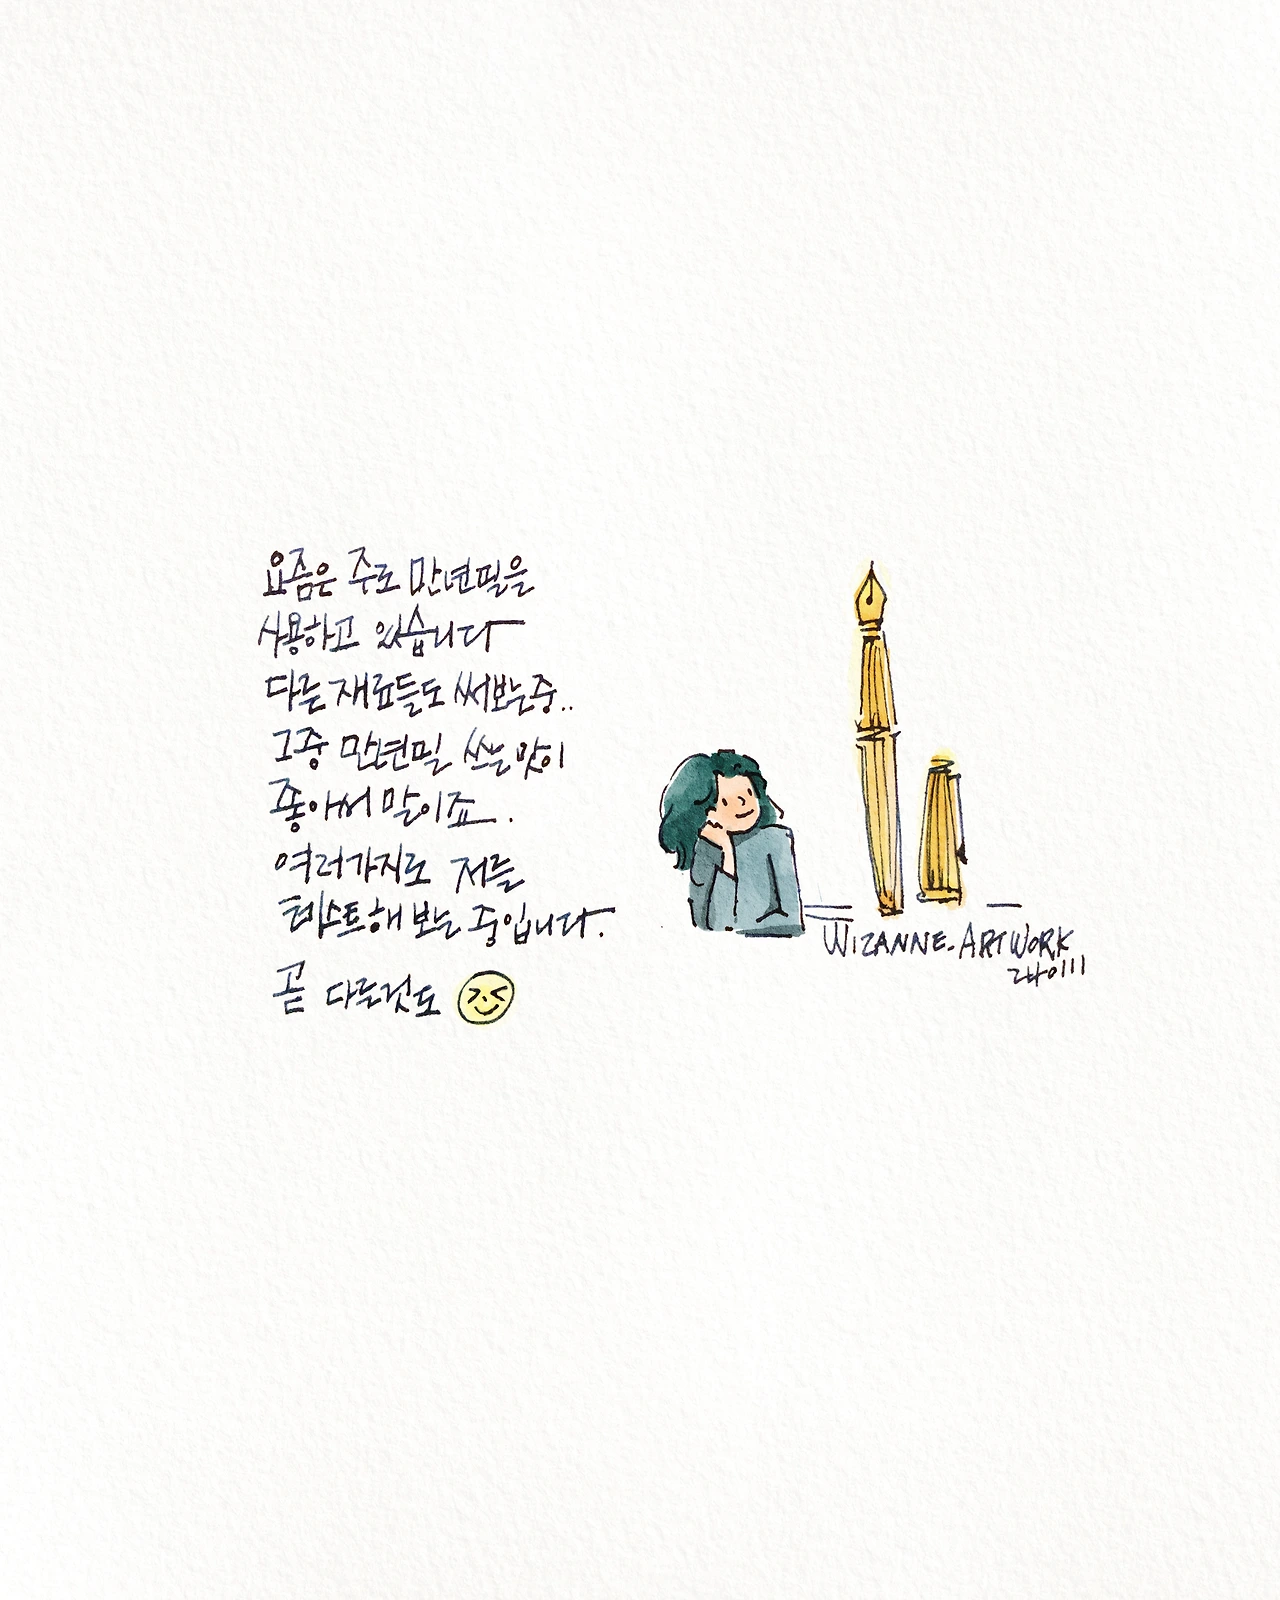 요즘은 주로 만년필을
사용하고 있습니다
다른 재료들도 써보는중..
그중 만년필 쓰는맛이
좋아서 말이죠.
여러가지로 저를
테스트해 보는 중입니다.
곧 다른것도
WIZANNE.ARTWORK
240111